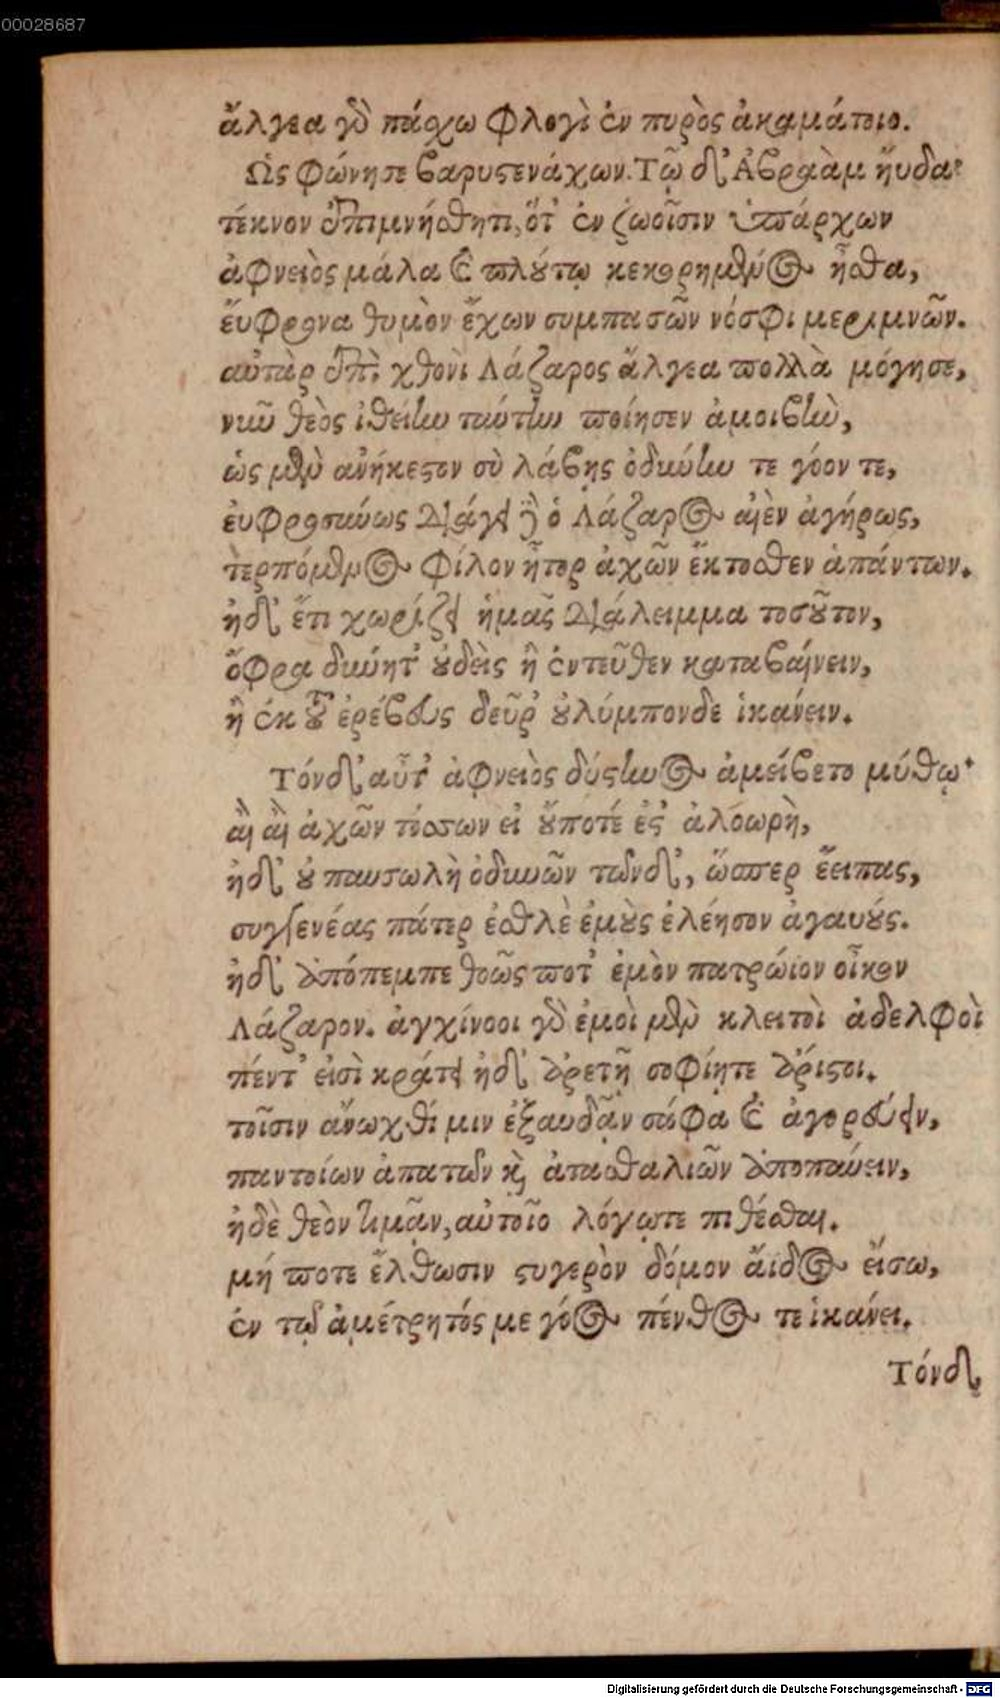 00028687
ἄλγεα γὸ πάχω φλογὶ ἐν πυρὸς ἀκαμάτοιο.
Ὣς φώνησε βαρυστενάχων. Τῷ δ' Ἀβραὰμ ηὔδα·
τέκνον ἐπιμνήσθητι, ὅτ' ἐν ζωοῖσιν ὑπάρχων
ἀφνειὸς μάλα καὶ πλούτῳ κεκορημένος ἦσθα,
ἔυφρονα θυμὸν ἔχων συμπασῶν νόσφι μεριμνῶν.
αὐτὰρ ἐπὶ χθονὶ Λάζαρος ἄλγεα πολλὰ μόγησε,
νῦν θεὸς ἰθείην ταύτην ποίησεν ἀμοιβὴν,
ὡς μὲν ἀνήκεστον σὺ λάβης ὀδύνην τε γόον τε,
ἐυφροσύνως διάγει δὲ ὁ Λάζαρος αἰὲν ἀγήρως,
τερπόμενος φίλον ἦτορ ἀχῶν ἔκτοσθεν ἁπάντων.
ἠδ' ἔτι χωρίζει ἡμᾶς διάλειμμα τοσοῦτον,
ὄφρα δύνητ' οὐδεὶς ἢ ἐντεῦθεν καταβαίνειν,
ἢ ἐκ τοῦ ἐρέβους δεῦρ' οὐλύμπονδε ἱκάνειν.
Τόνδ' αὖτ' ἀφνειὸς δύστηνος ἀμείβετο μύθῳ·
αἲ αἲ ἀχῶν τόσσων εἰ οὔποτέ ἐστ' ἀλεωρὴ,
ἠδ' οὐ παυσωλὴ ὀδυνῶν τῶνδ', ὥσπερ ἔειπας,
συγγενέας πάτερ ἐσθλὲ ἐμοὺς ἐλέησον ἀγαυούς.
ἠδ' ἀπόπεμπε θοῶς ποτ' ἐμὸν πατρώιον οἶκον
Λάζαρον. ἀγχίνοοι γὸ ἐμοὶ μὲν κλειτοὶ ἀδελφοὶ
πέντ' εἰσὶ κράτει ἠδ' ἀρετῇ σοφίῃτε ἄριστοι.
τοῖσιν ἄνωχθί μιν ἐξαυδᾷν σάφα καὶ ἀγορεύειν,
παντοίων ἀπατῶν καὶ ἀτασθαλιῶν ἀποπαύειν,
ἠδὲ θεὸν τιμᾷν, αὐτοῖο λόγῳτε πιθέσθαι.
μή ποτε ἔλθωσιν στυγερὸν δόμον ἄϊδος εἴσω,
ἐν τῷδ' ἀμέτρητός με γόος πένθος τε ἱκάνει.
Τόνδ'
Digitalisierung gefördert durch die Deutsche Forschungsgemeinschaft - DFG